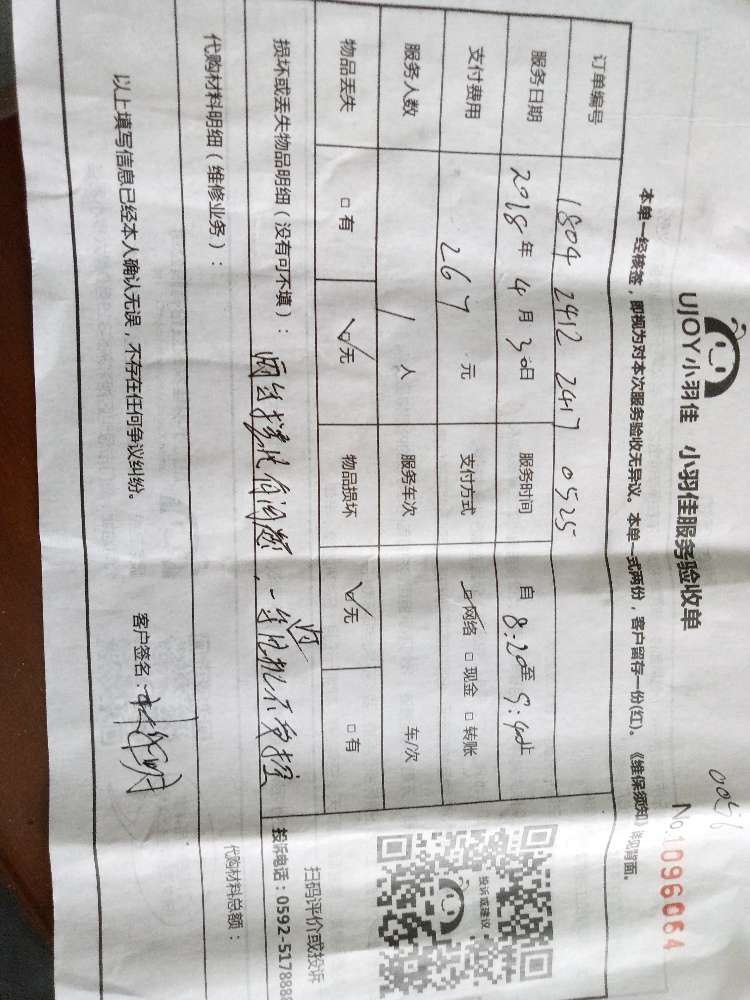 0056
UJOY小羽佳 小羽佳服务验收单 No.1096064
本单一经核签，即视为对本次服务验收无异议。本单一式两份，客户留存一份(红)。《维保须知》详见背面。
订单编号 1804 2412 2417 0525
服务日期 2018年 4月 30日 服务时间 自 8:20至 9:40止
支付费用 267 元 支付方式 ☑网络 □现金 □转账
服务人数 1 人 服务车次 车/次
物品丢失 □有 ☑无 物品损坏 ☑无 □有
损坏或丢失物品明细（没有可不填）： 两台 有问题，一 机不
代购材料明细（维修业务）： 代购材料总额：
以上填写信息已经本人确认无误，不存在任何争议纠纷。 客户签名：
投诉或建议
扫码评价或投诉
投诉电话：0592-5178888